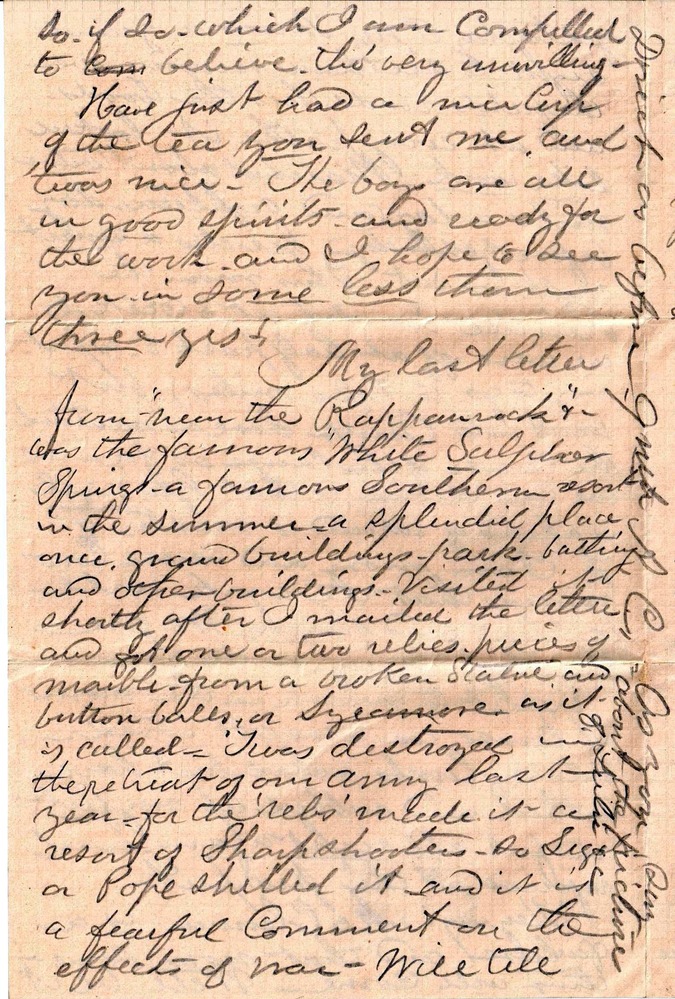 so. if so - which I am Compelled
to Com believe. tho' very unwilling -
Have just had a nice Cup
of the tea you sent me and
'twas nice - The boys are all
in good spirits - and ready for
the work - and I hope to see
you in some less than
three yrs!
My last letter
from "near the Rappannock" &
was the famous "White Sulpher
Springs - a famous Southern resort
in the summer - a splendid place
once, grand buildings - park - bathing
and other buildings - Visited it
shortly after I mailed the letter
and got one or two relics - pieces of
marble - from a broken Statue and
button balls, or Sycamore as it
is called - 'Twas destroyed in
the retreat of our army last
year - for the 'rebs' made it a
resort of Sharpshooters - so Sigel
or Pope shelled it and it is
a fearful Comment on the
effects of war - Will tell
Direct as before -
As you
about the picture